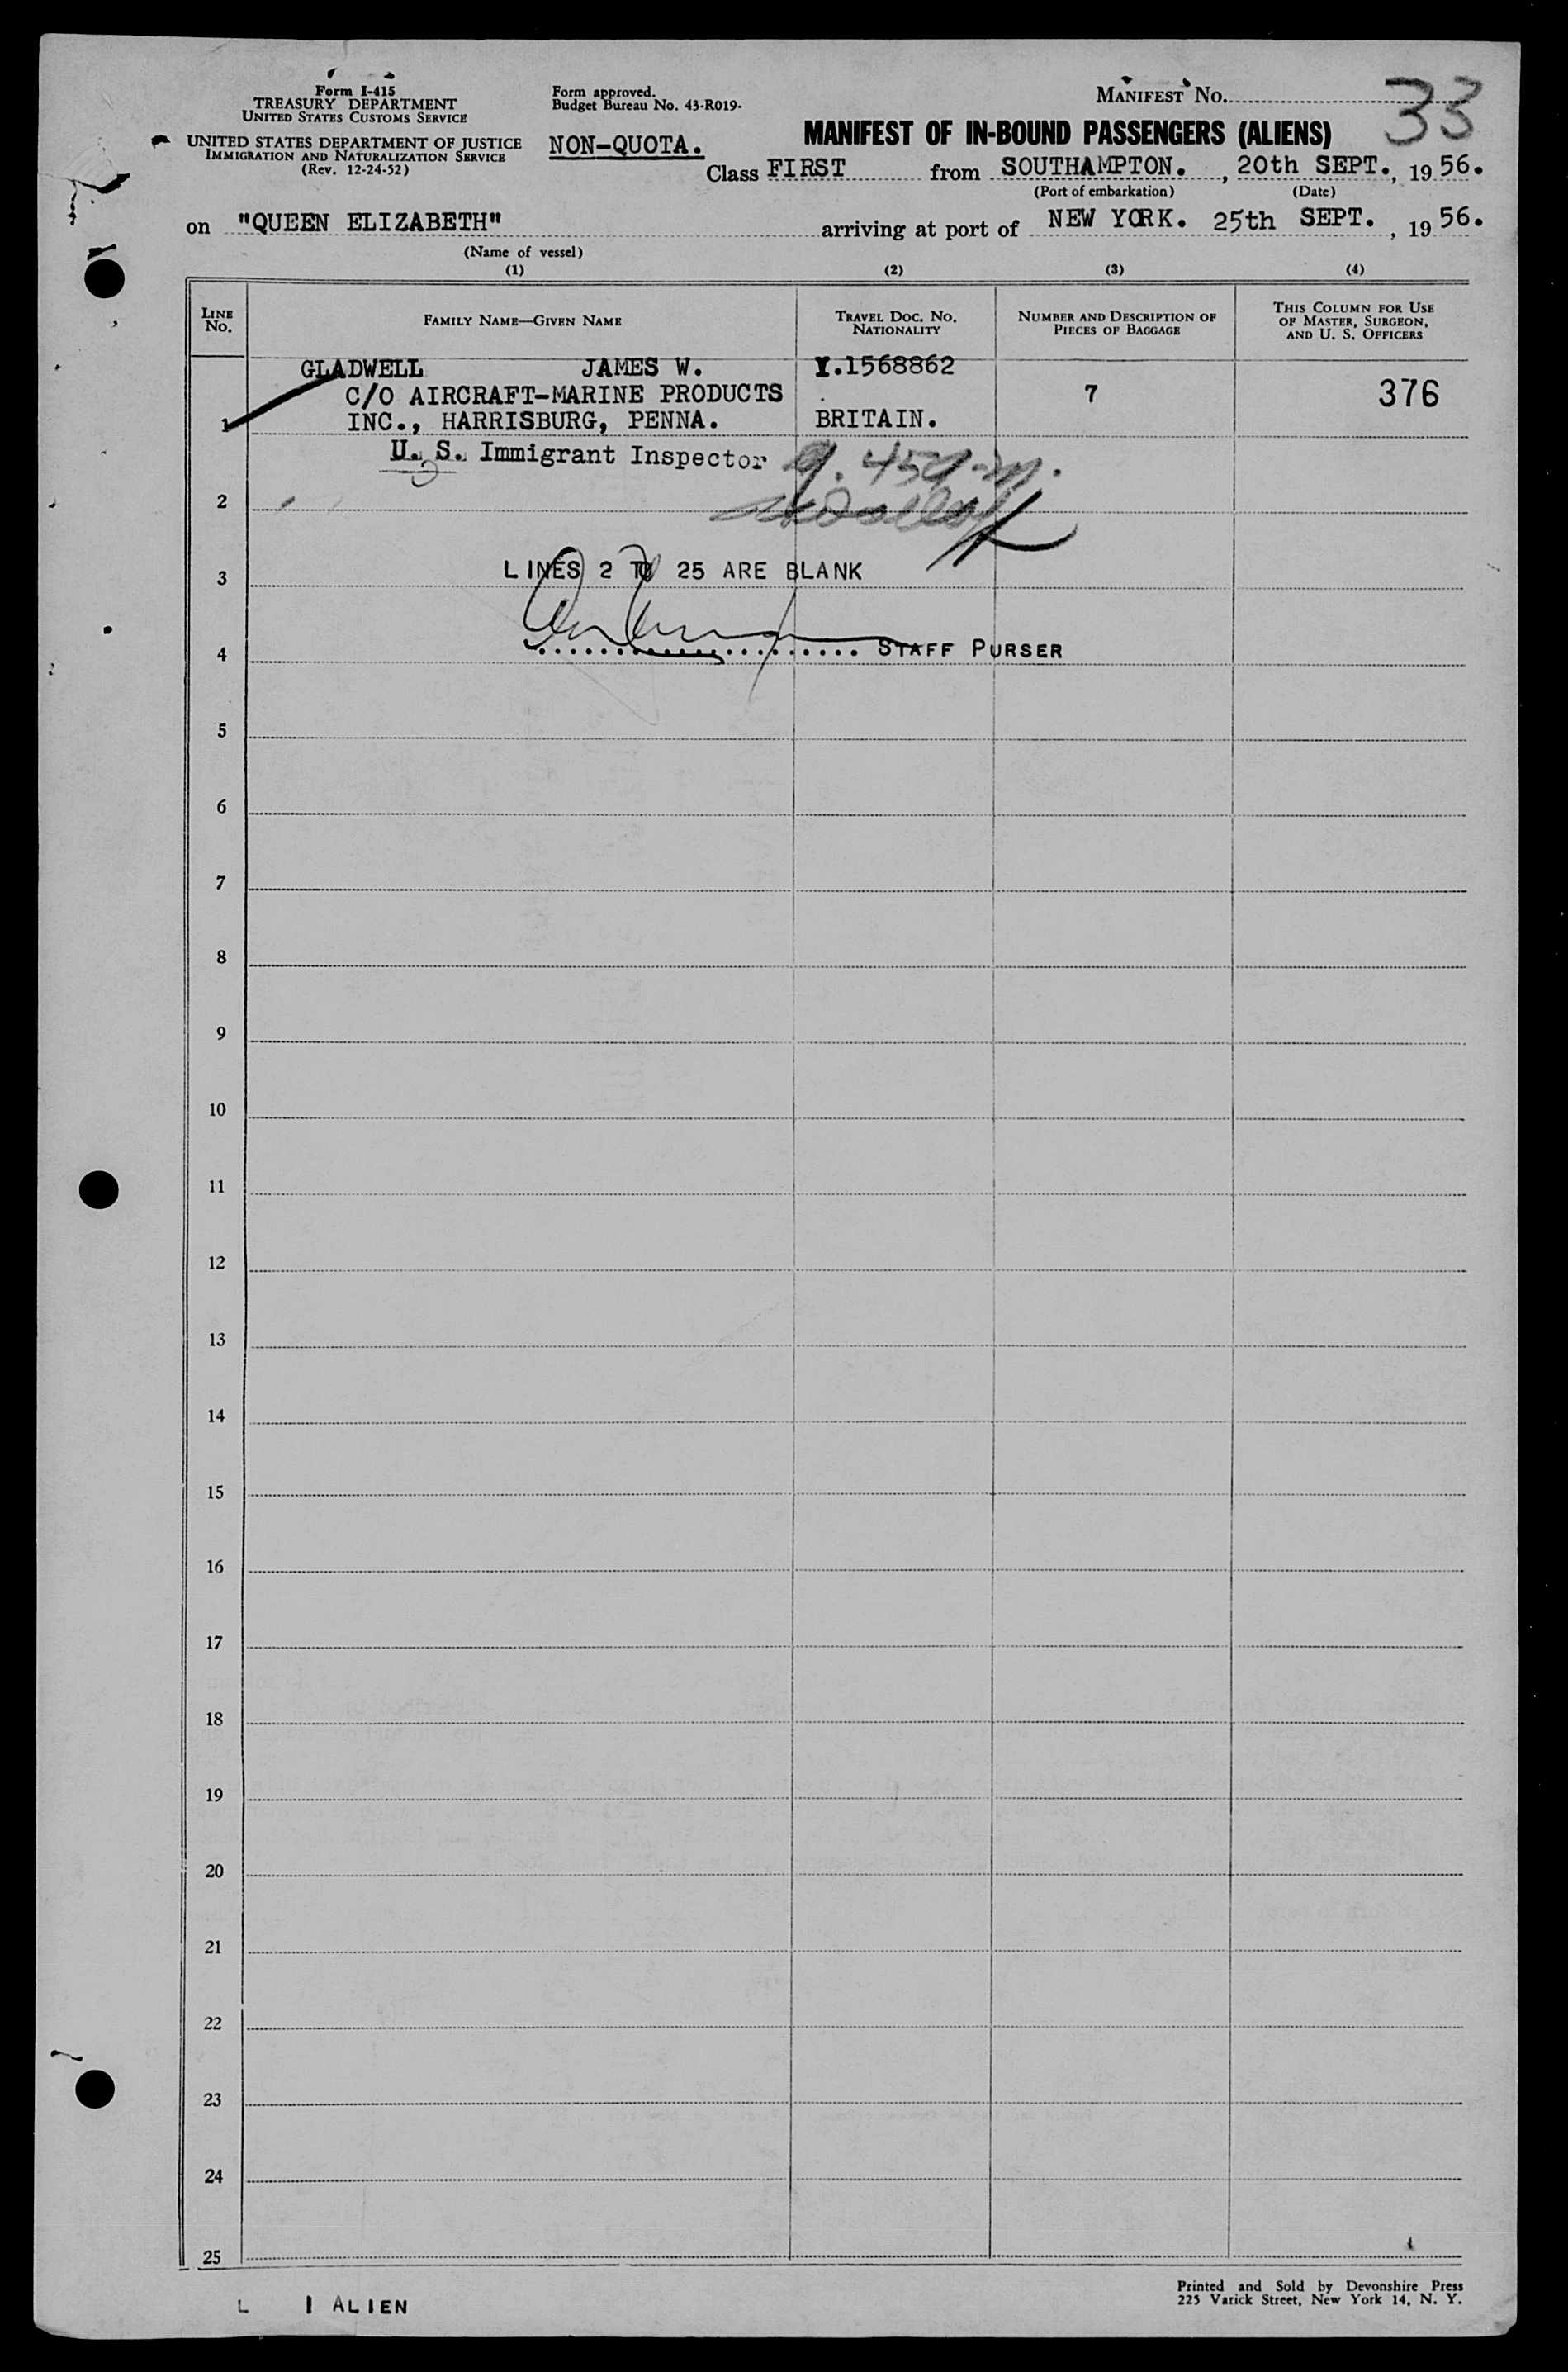 Form I-415
TREASURY DEPARTMENT
UNITED STATES CUSTOMS SERVICE
UNITED STATES DEPARTMENT OF JUSTICE
IMMIGRATION AND NATURALIZATION SERVICE
(Rev. 12-24-52)
Form approved.
Budget Bureau No. 43-R019-
NON-QUOTA.
MANIFEST No. 33
MANIFEST OF IN-BOUND PASSENGERS (ALIENS)
Class FIRST from SOUTHAMPTON. , 20th SEPT., 19 56.
(Port of embarkation) (Date)
on "QUEEN ELIZABETH" arriving at port of NEW YORK. 25th SEPT. , 19 56.
(Name of vessel)
(1) (2) (3) (4)
LINE No. FAMILY NAME—GIVEN NAME TRAVEL DOC. No. NATIONALITY NUMBER AND DESCRIPTION OF PIECES OF BAGGAGE THIS COLUMN FOR USE OF MASTER, SURGEON, AND U. S. OFFICERS
GLADWELL JAMES W. .1568862
C/O AIRCRAFT-MARINE PRODUCTS 7 376
1 INC., HARRISBURG, PENNA. BRITAIN.
U. S. Immigrant Inspector
2
3 LINES 2 TO 25 ARE BLANK
4 STAFF PURSER
5
6
7
8
9
10
11
12
13
14
15
16
17
18
19
20
21
22
23
24
25
L 1 ALIEN
Printed and Sold by Devonshire Press
225 Varick Street, New York 14, N. Y.